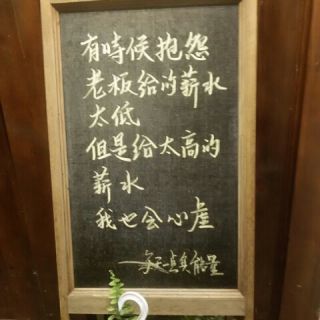 有時候抱怨
老板給的薪水
太低
但是給太高的
薪水
我也会心虛
每天一点負能量